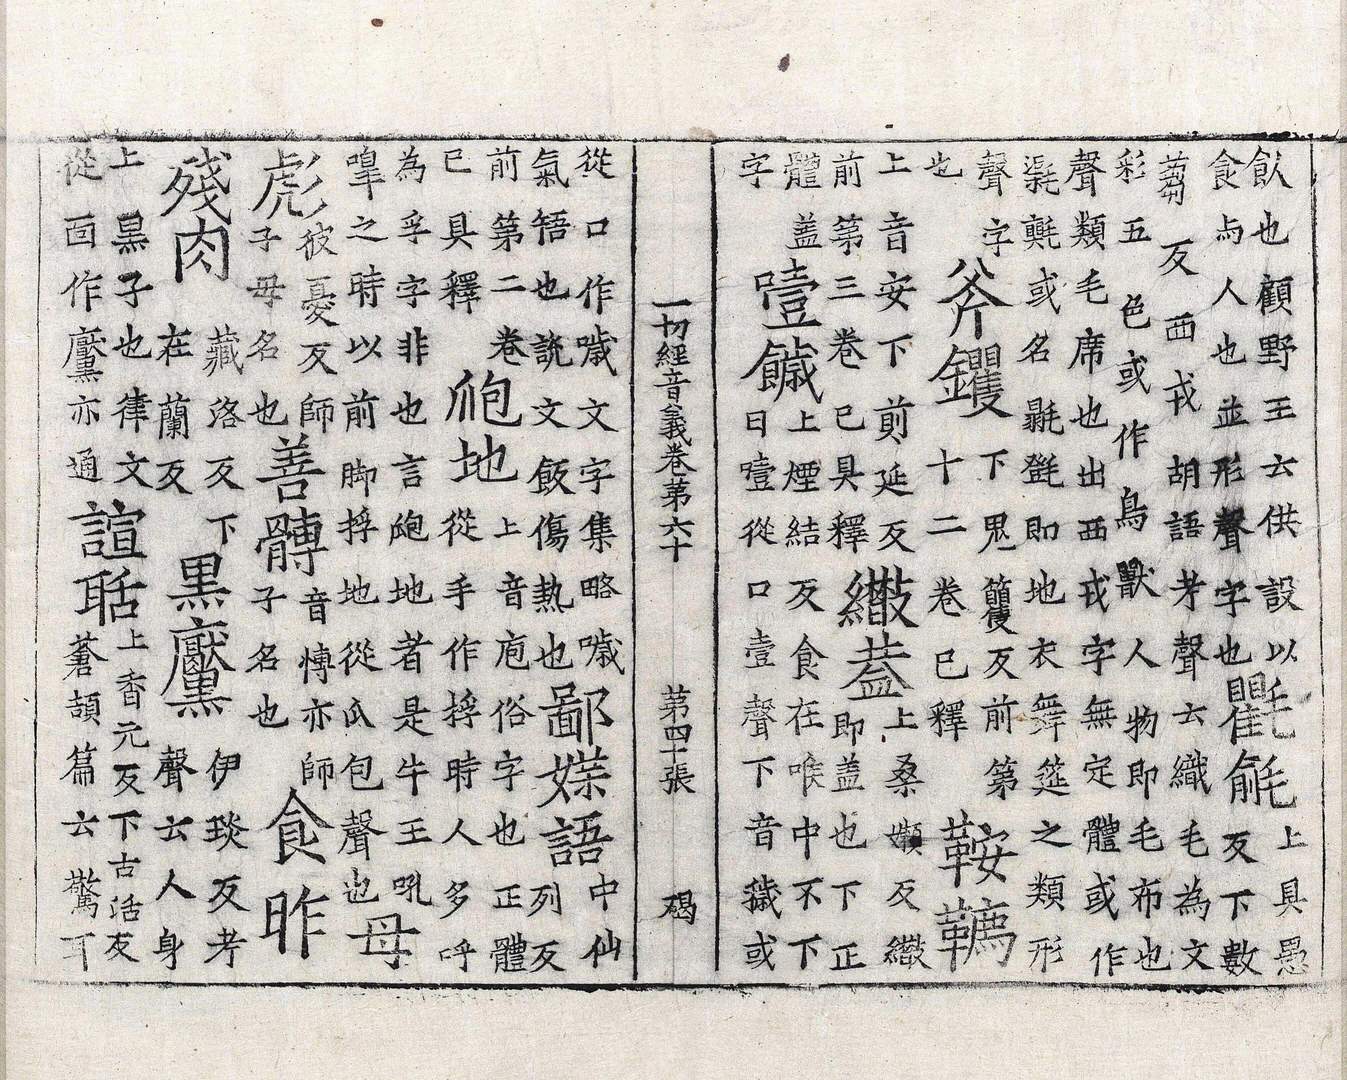 飤也顧野王云供設以
食与人也並形聲字也
氍毹
上具愚
反下數
蒭反西戎胡語考聲云織毛為文
彩五色或作鳥獸人物即毛布也
聲類毛席也出西戎字無定體或作
㲣㲪或名毾㲪即地衣舞筵之類形
聲字
也
斧钁
下鬼籰反前第
十二卷已釋
鞍韉
上音安下前延反
前第三卷已具釋
繖蓋
上桑嬾反繖
即盖也下正
體盖
字
噎𩟖
上煙結反食在喉中不下
曰噎從口壹聲下音薉或
一切經音義卷第六十 第四十張 碣
從口作噦文字集略噦
氣牾也說文飯傷熱也
鄙媟語
中仙
列反
前第二卷
已具釋
䶌地
上音庖俗字也正體
從手作捊時人多呼
為孚字非也言䶌地者是牛王吼
嘷之時以前脚捊地從瓜包聲也
母
彪
彼憂反師
子母名也
善髆
音愽亦師
子名也
食昨
殘肉
藏洛反下
在蘭反
黑黶
伊琰反考
聲云人身
上黒子也律文
從面作黶亦通
諠聒
上香元反下古活反
蒼頡篇云驚耳